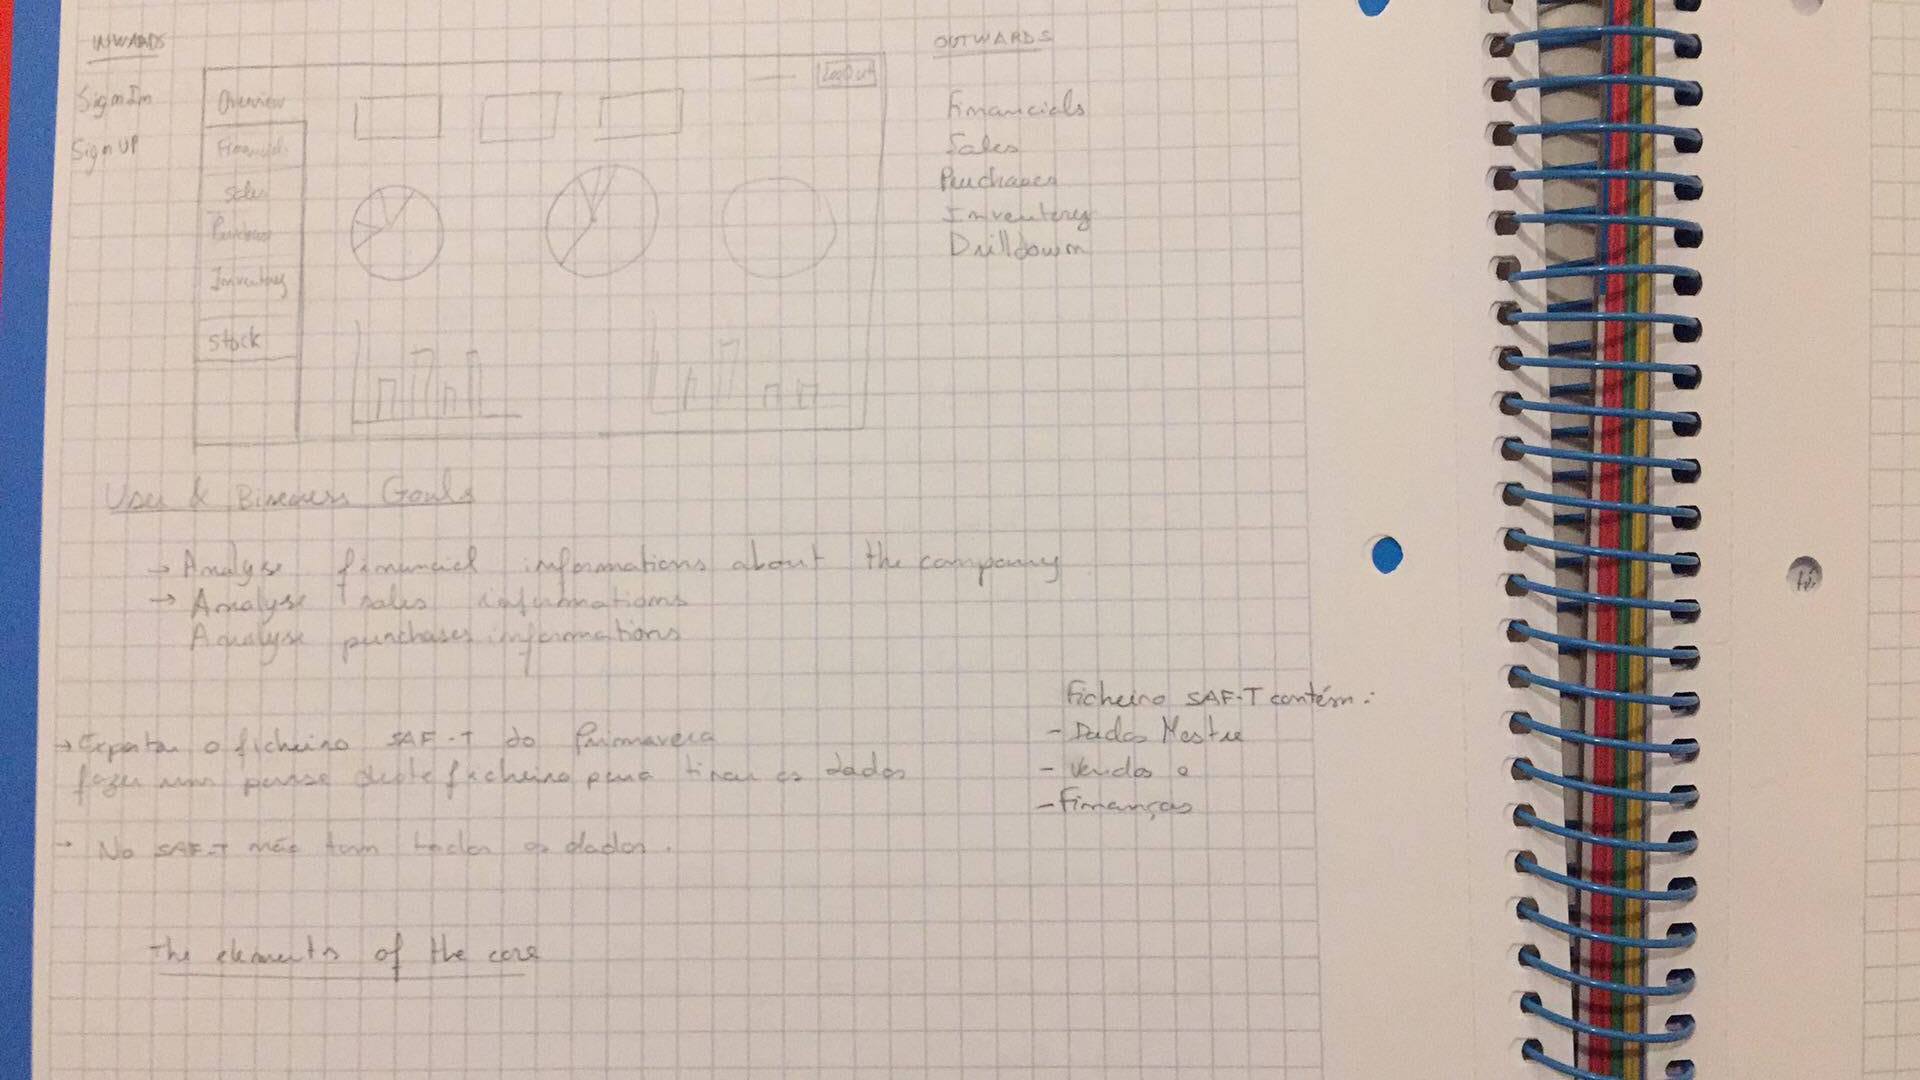 INWARDS
Sign In
Sign UP
Overview
Financials
Sales
Purchases
Inventory
Stock
LogOut
OUTWARDS
Financials
Sales
Purchases
Inventory
Drilldown
User & Bisness Goals
→ Analyse financial informations about the company
→ Analyse sales informations
Analyse purchases informations
→ Exportar o ficheiro SAF-T do Primavera
fazer um parse deste ficheiro para tirar os dados
→ No SAF-T não tem todos os dados.
Ficheiro SAF-T contém:
- Dados Mestre
- Vendas e
- Finanças
The elements of the core